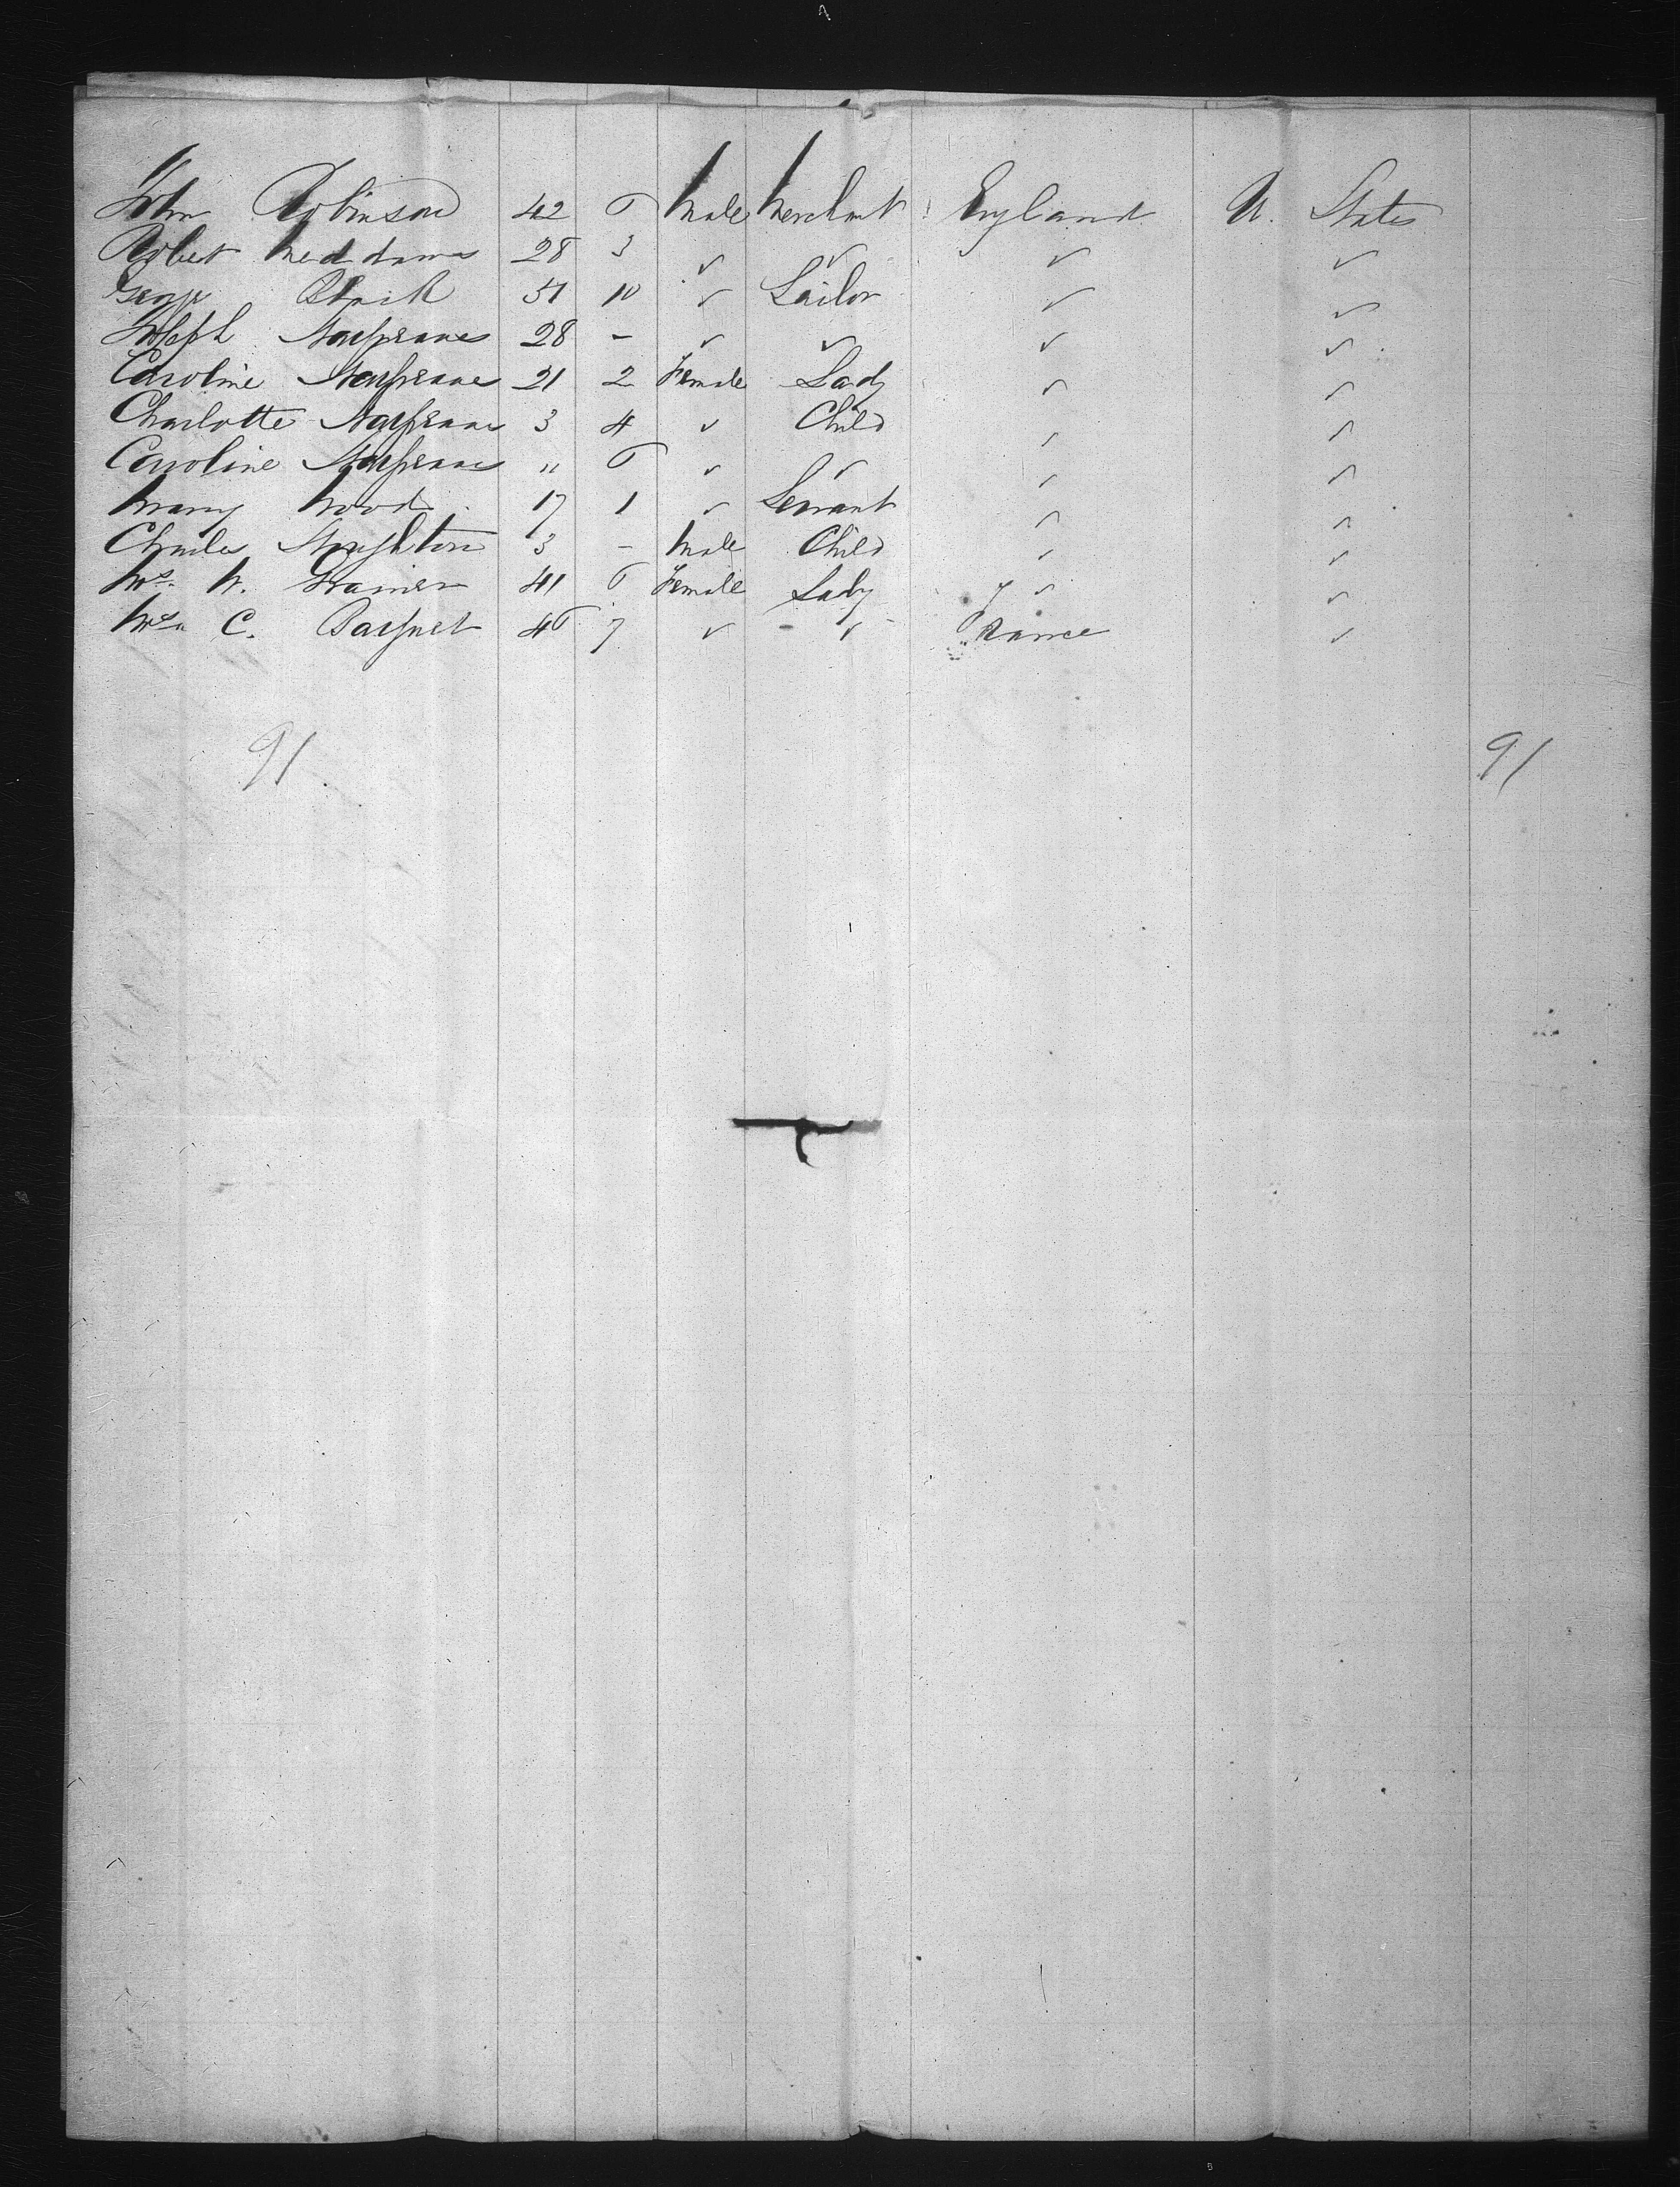 John Robinson 42 6 Male Merchant England U. States
Robert Meddams 28 3 ✓ ✓ ✓ ✓
George 51 10 ✓ Sailor ✓ ✓
Joseph 28 - ✓ ✓ ✓ ✓
Caroline 21 2 Female Lady ✓ ✓
Charlotte 3 4 ✓ Child ✓ ✓
Caroline " 6 ✓ ✓ ✓ ✓
Mary Wood 17 1 ✓ Servant ✓ ✓
Charles 3 - Male Child ✓ ✓
Mrs. 41 6 Female Lady ✓ ✓
Mrs. C. 46 7 ✓ ✓ France ✓
91 91